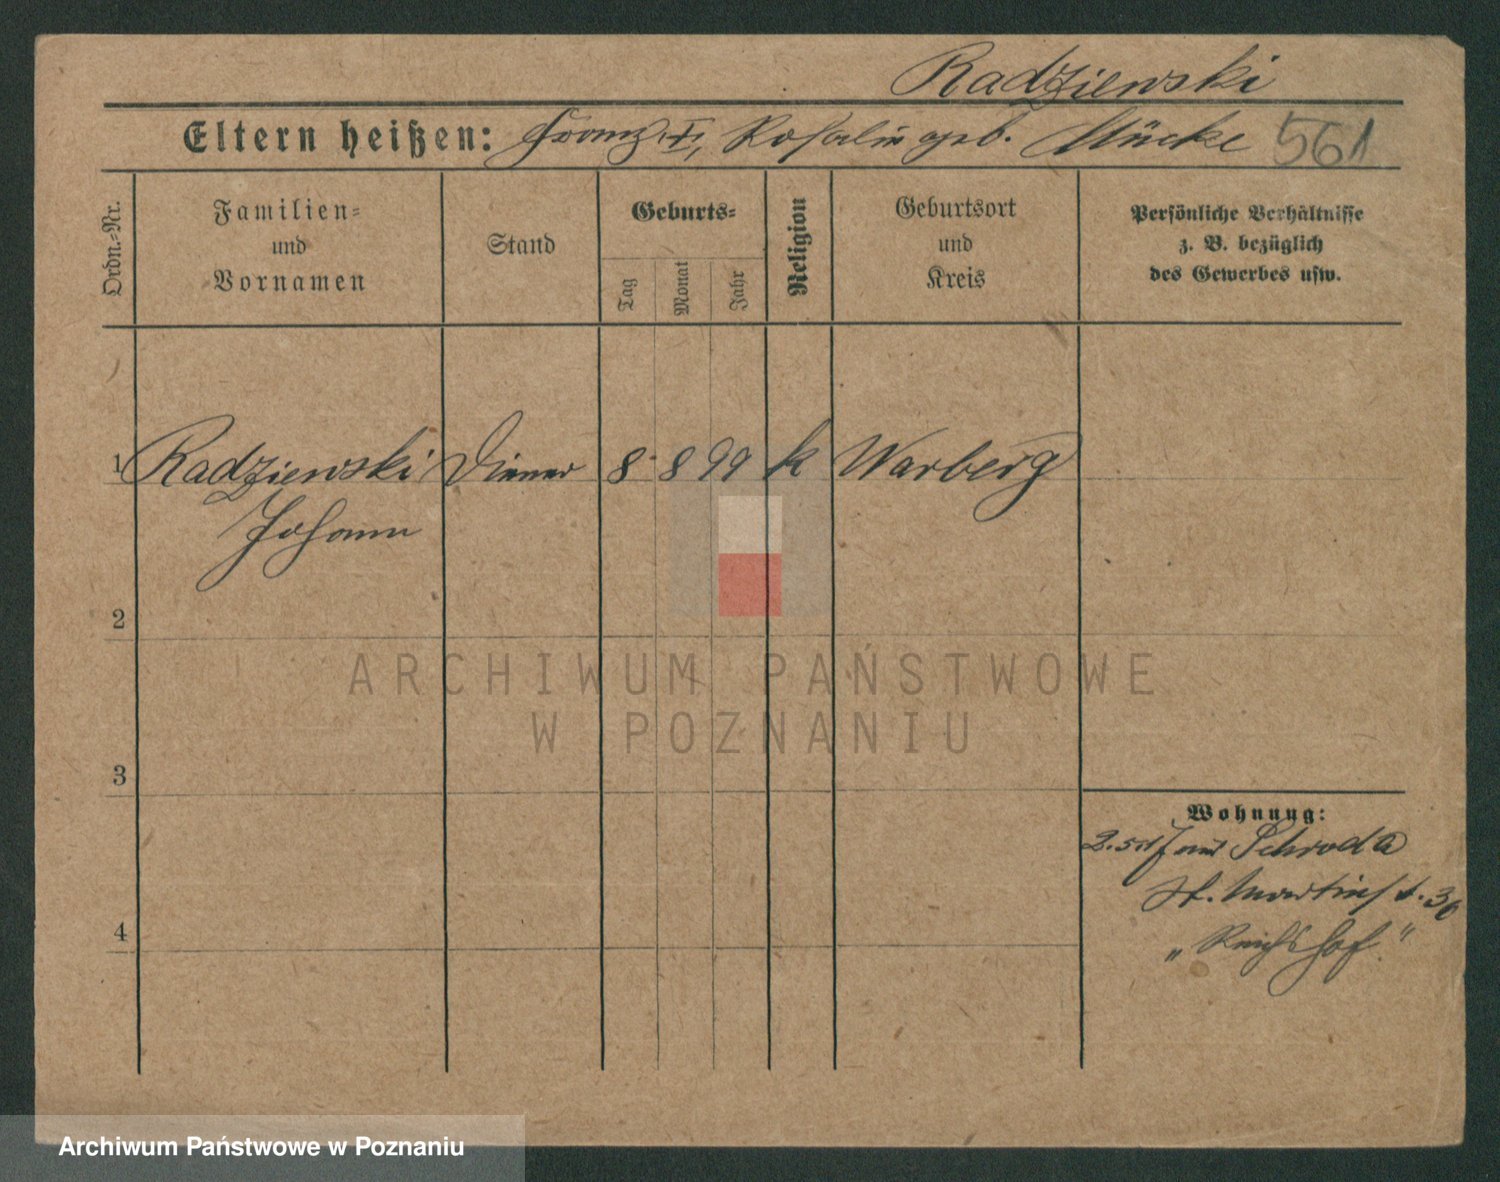 Radziewski
Eltern heißen: Franz †, Rosalie geb. Mücke 561
Ordn.-Nr.
Familien-
und
Vornamen
Stand
Geburts-
Tag
Monat
Jahr
Religion
Geburtsort
und
Kreis
Persönliche Verhältnisse
z. B. bezüglich
des Gewerbes usw.
1 Radziewski Diener 8 8 99 k Warberg
Johann
2
3
4
Wohnung:
Schroda
St. Martinst. 36
„Reichshof"
ARCHIWUM PAŃSTWOWE
W POZNANIU
Archiwum Państwowe w Poznaniu